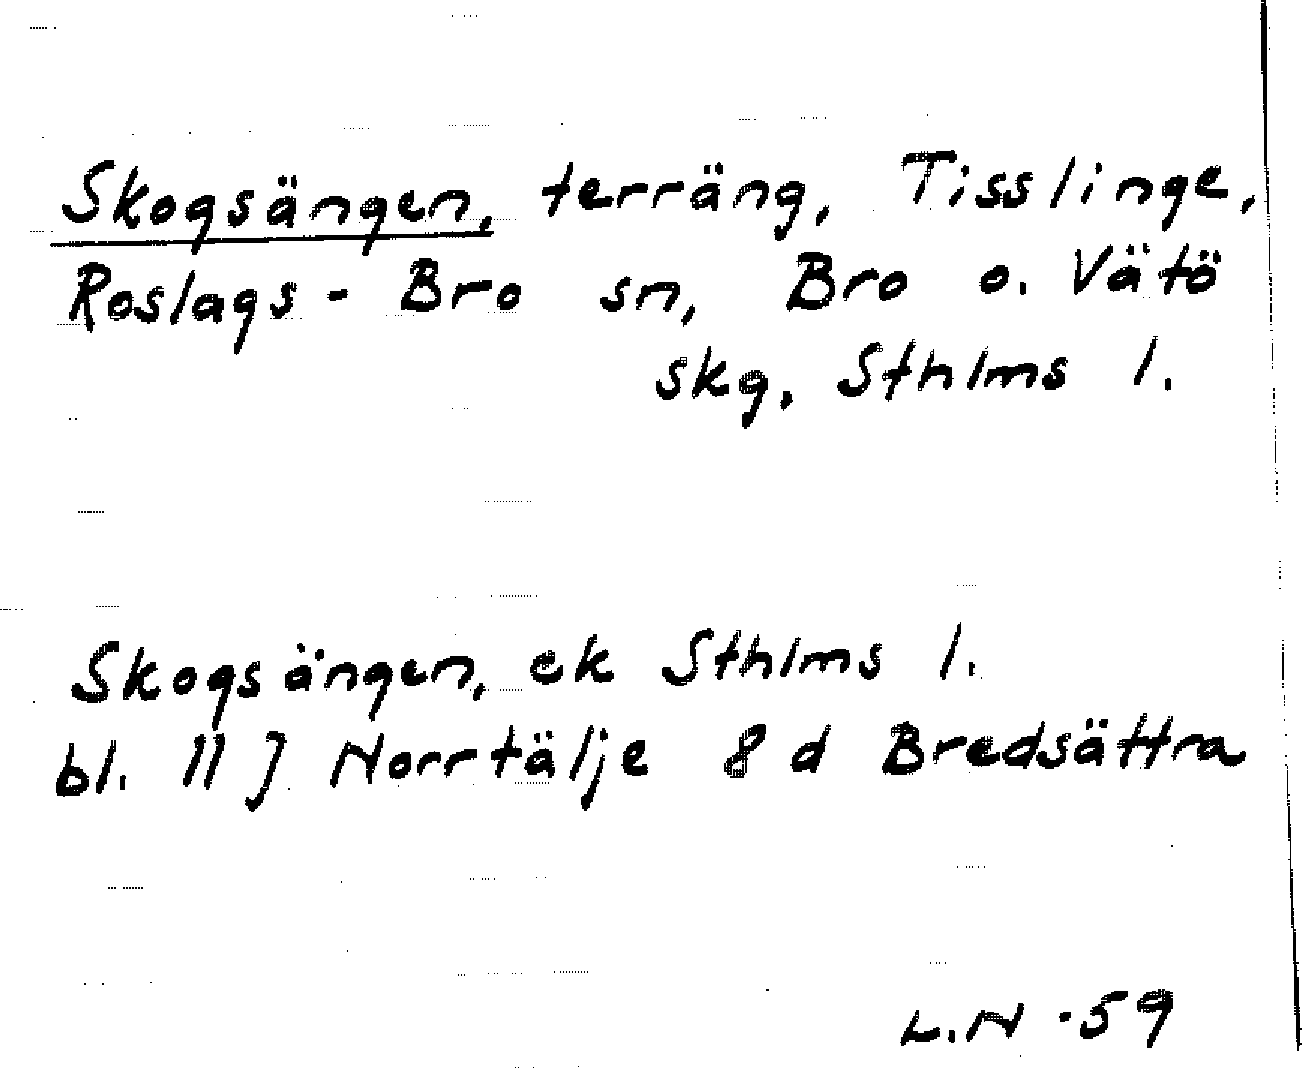 Skogsängen, terräng, Tisslinge,
Roslags-Bro sn, Bro o. Vätö
skg, Sthlms l.
Skogsängen, ek Sthlms l.
bl. 11 J Norrtälje 8 d Bredsättra
L.N -59